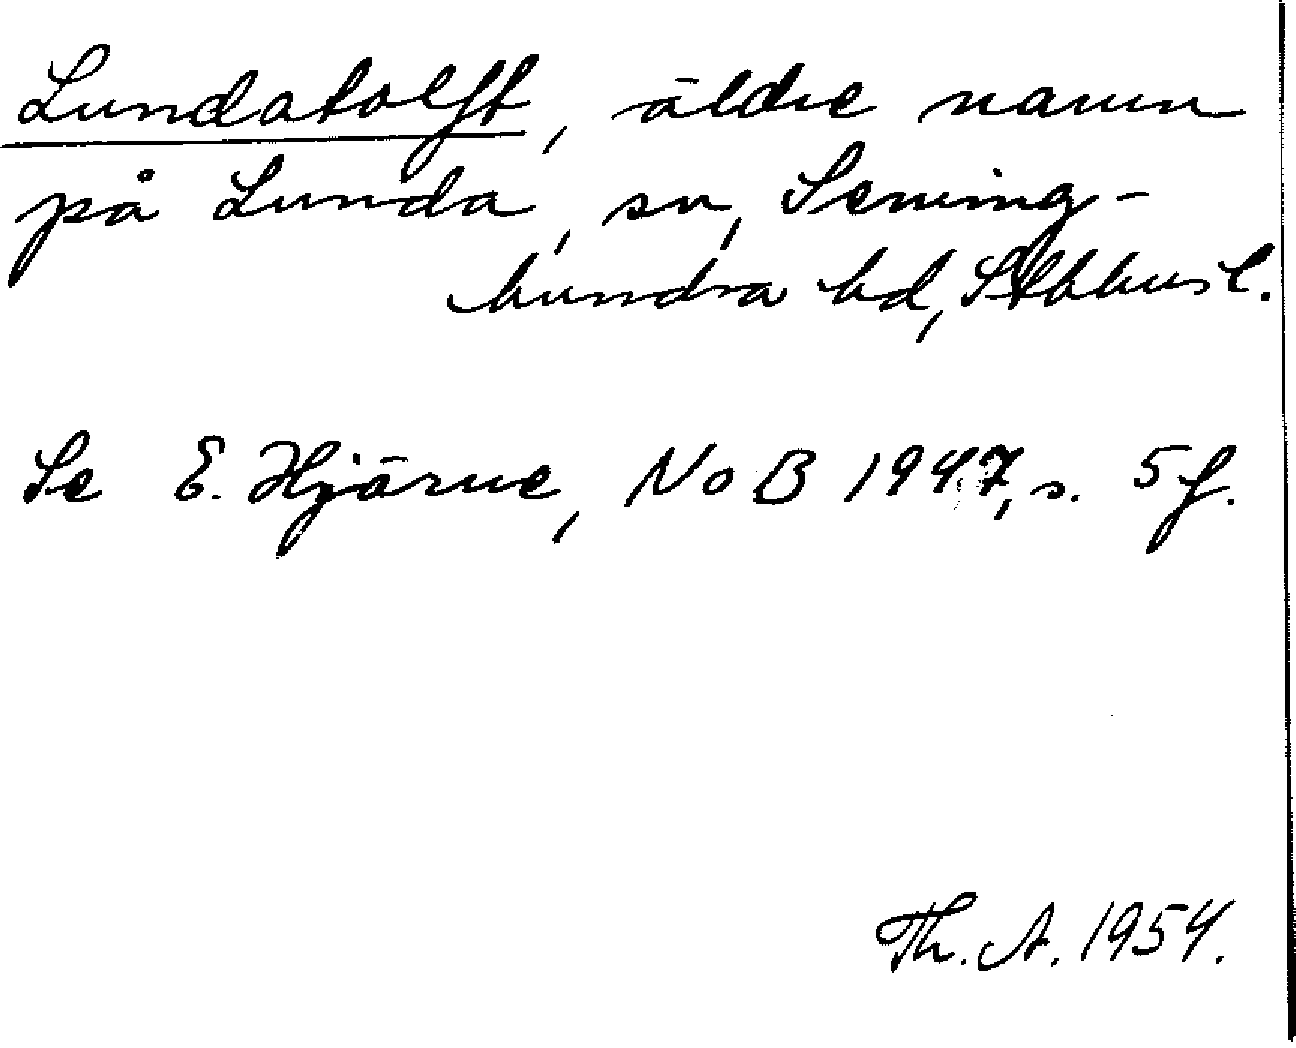 Lundatolft, äldre namn
på Lunda, sn, Seming-
hundra hd, Sthhus l.
Se E. Hjärne, NoB 1947, s. 5 f.
Th. A. 1954.